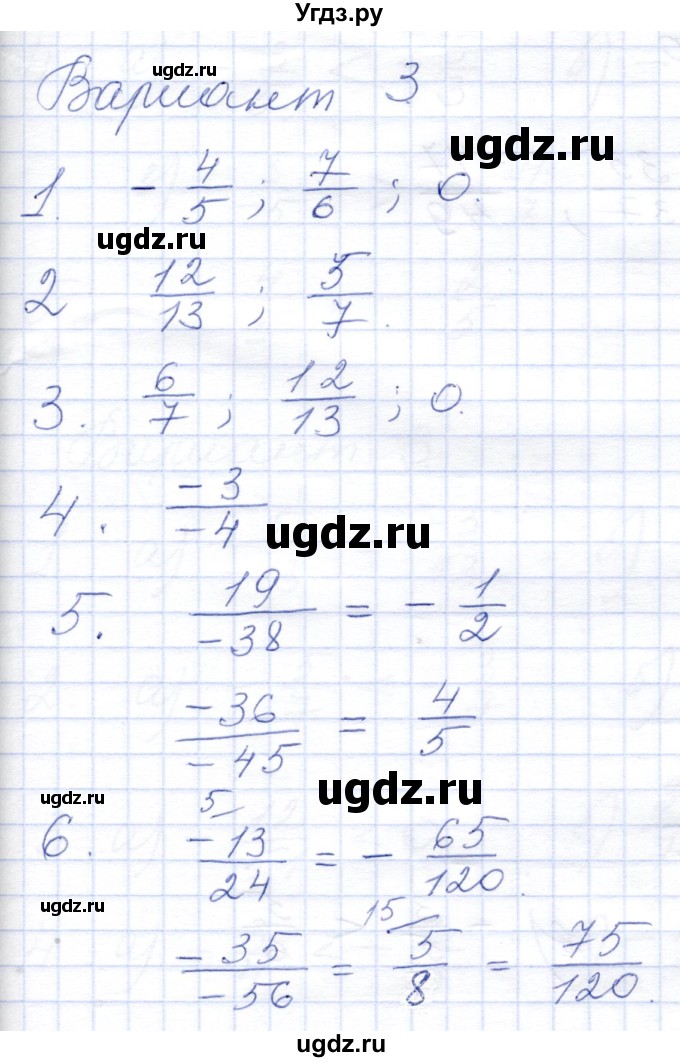 Угдз.ру
ugdz.ru
Вариант 3
ugdz.ru
1. - 4/5 ; 7/6 ; 0.
ugdz.ru
2 12/13 ; 5/7.
3. 6/7 ; 12/13 ; 0.
4. -3/-4
ugdz.ru
5. 19/-38 = - 1/2
-36/-45 = 4/5
ugdz.ru
ugdz.ru
5
6. -13/24 = - 65/120.
ugdz.ru
15
-35/-56 = 5/8 = 75/120.
ugdz.ru